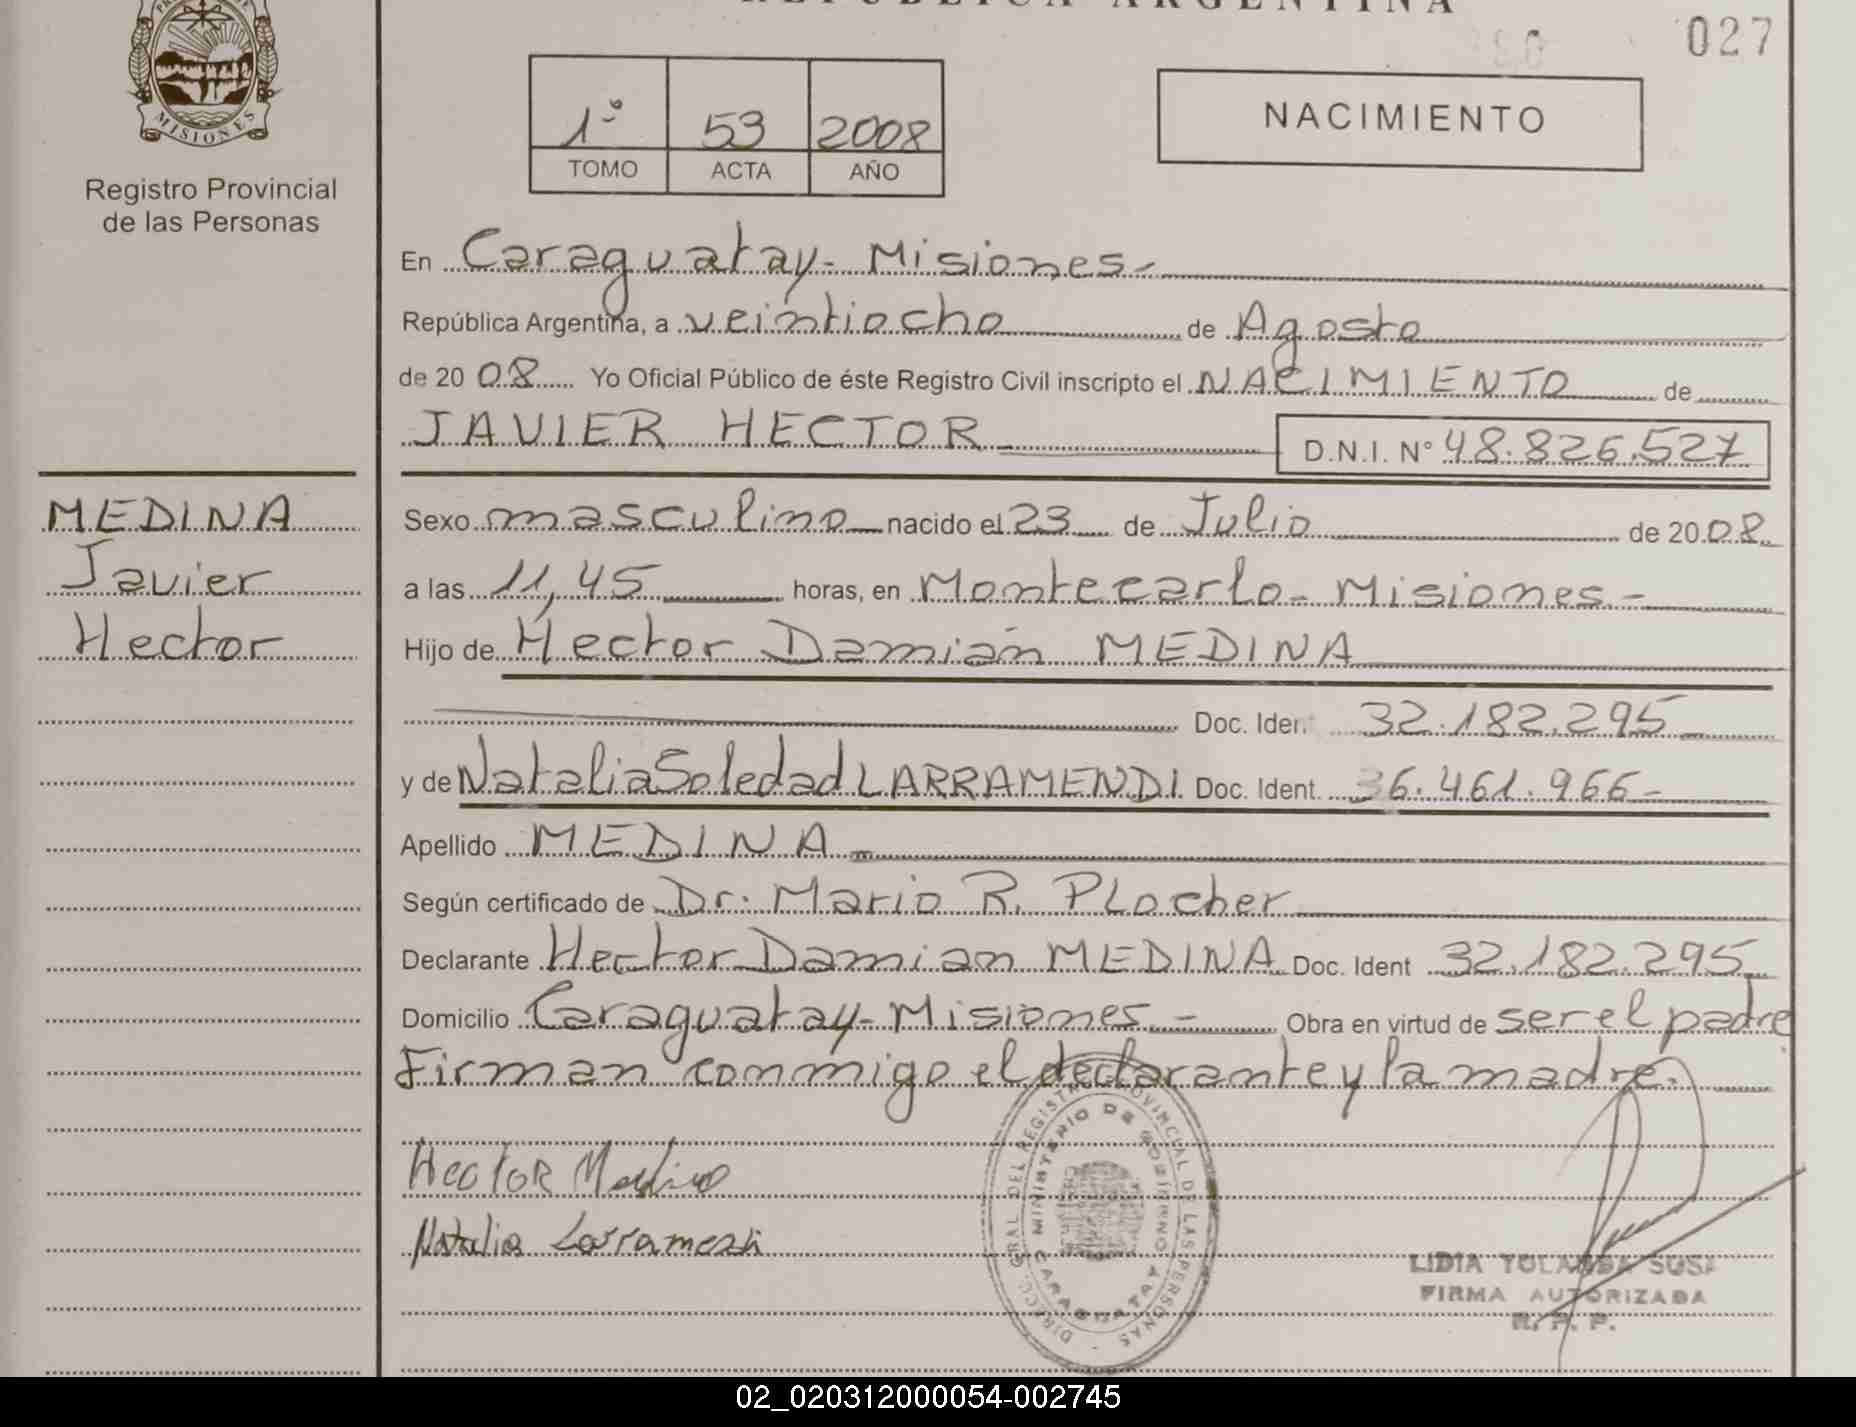 REPÚBLICA ARGENTINA
027
MISIONES
Registro Provincial
de las Personas
1º 53 2008
TOMO ACTA AÑO
NACIMIENTO
En Caraguatay - Misiones -
República Argentina, a veintiocho de Agosto
de 2008 Yo Oficial Público de éste Registro Civil inscripto el NACIMIENTO de
JAVIER HECTOR D.N.I. Nº 48.826.527
MEDINA
Javier
Hector
Sexo masculino nacido el 23 de Julio de 2008
a las 11,45 horas, en Montecarlo - Misiones -
Hijo de Hector Damián MEDINA
Doc. Iden. 32.182.295
y de Natalia Soledad LARRAMENDI Doc. Ident. 36.461.966 -
Apellido MEDINA -
Según certificado de Dr. Mario R. PLocher
Declarante Hector Damian MEDINA Doc. Ident 32.182.295
Domicilio Caraguatay - Misiones - Obra en virtud de ser el padre
Firman conmigo el declarante y la madre.
Hector Medina
Natalia Larramendi
DIRECC. GRAL. DEL REGISTRO PROVINCIAL DE LAS PERSONAS
MINISTERIO DE GOBIERNO
CARAGUATAY
LIDIA YOLANDA SOSA
FIRMA AUTORIZADA
R. P. P.
02_020312000054-002745